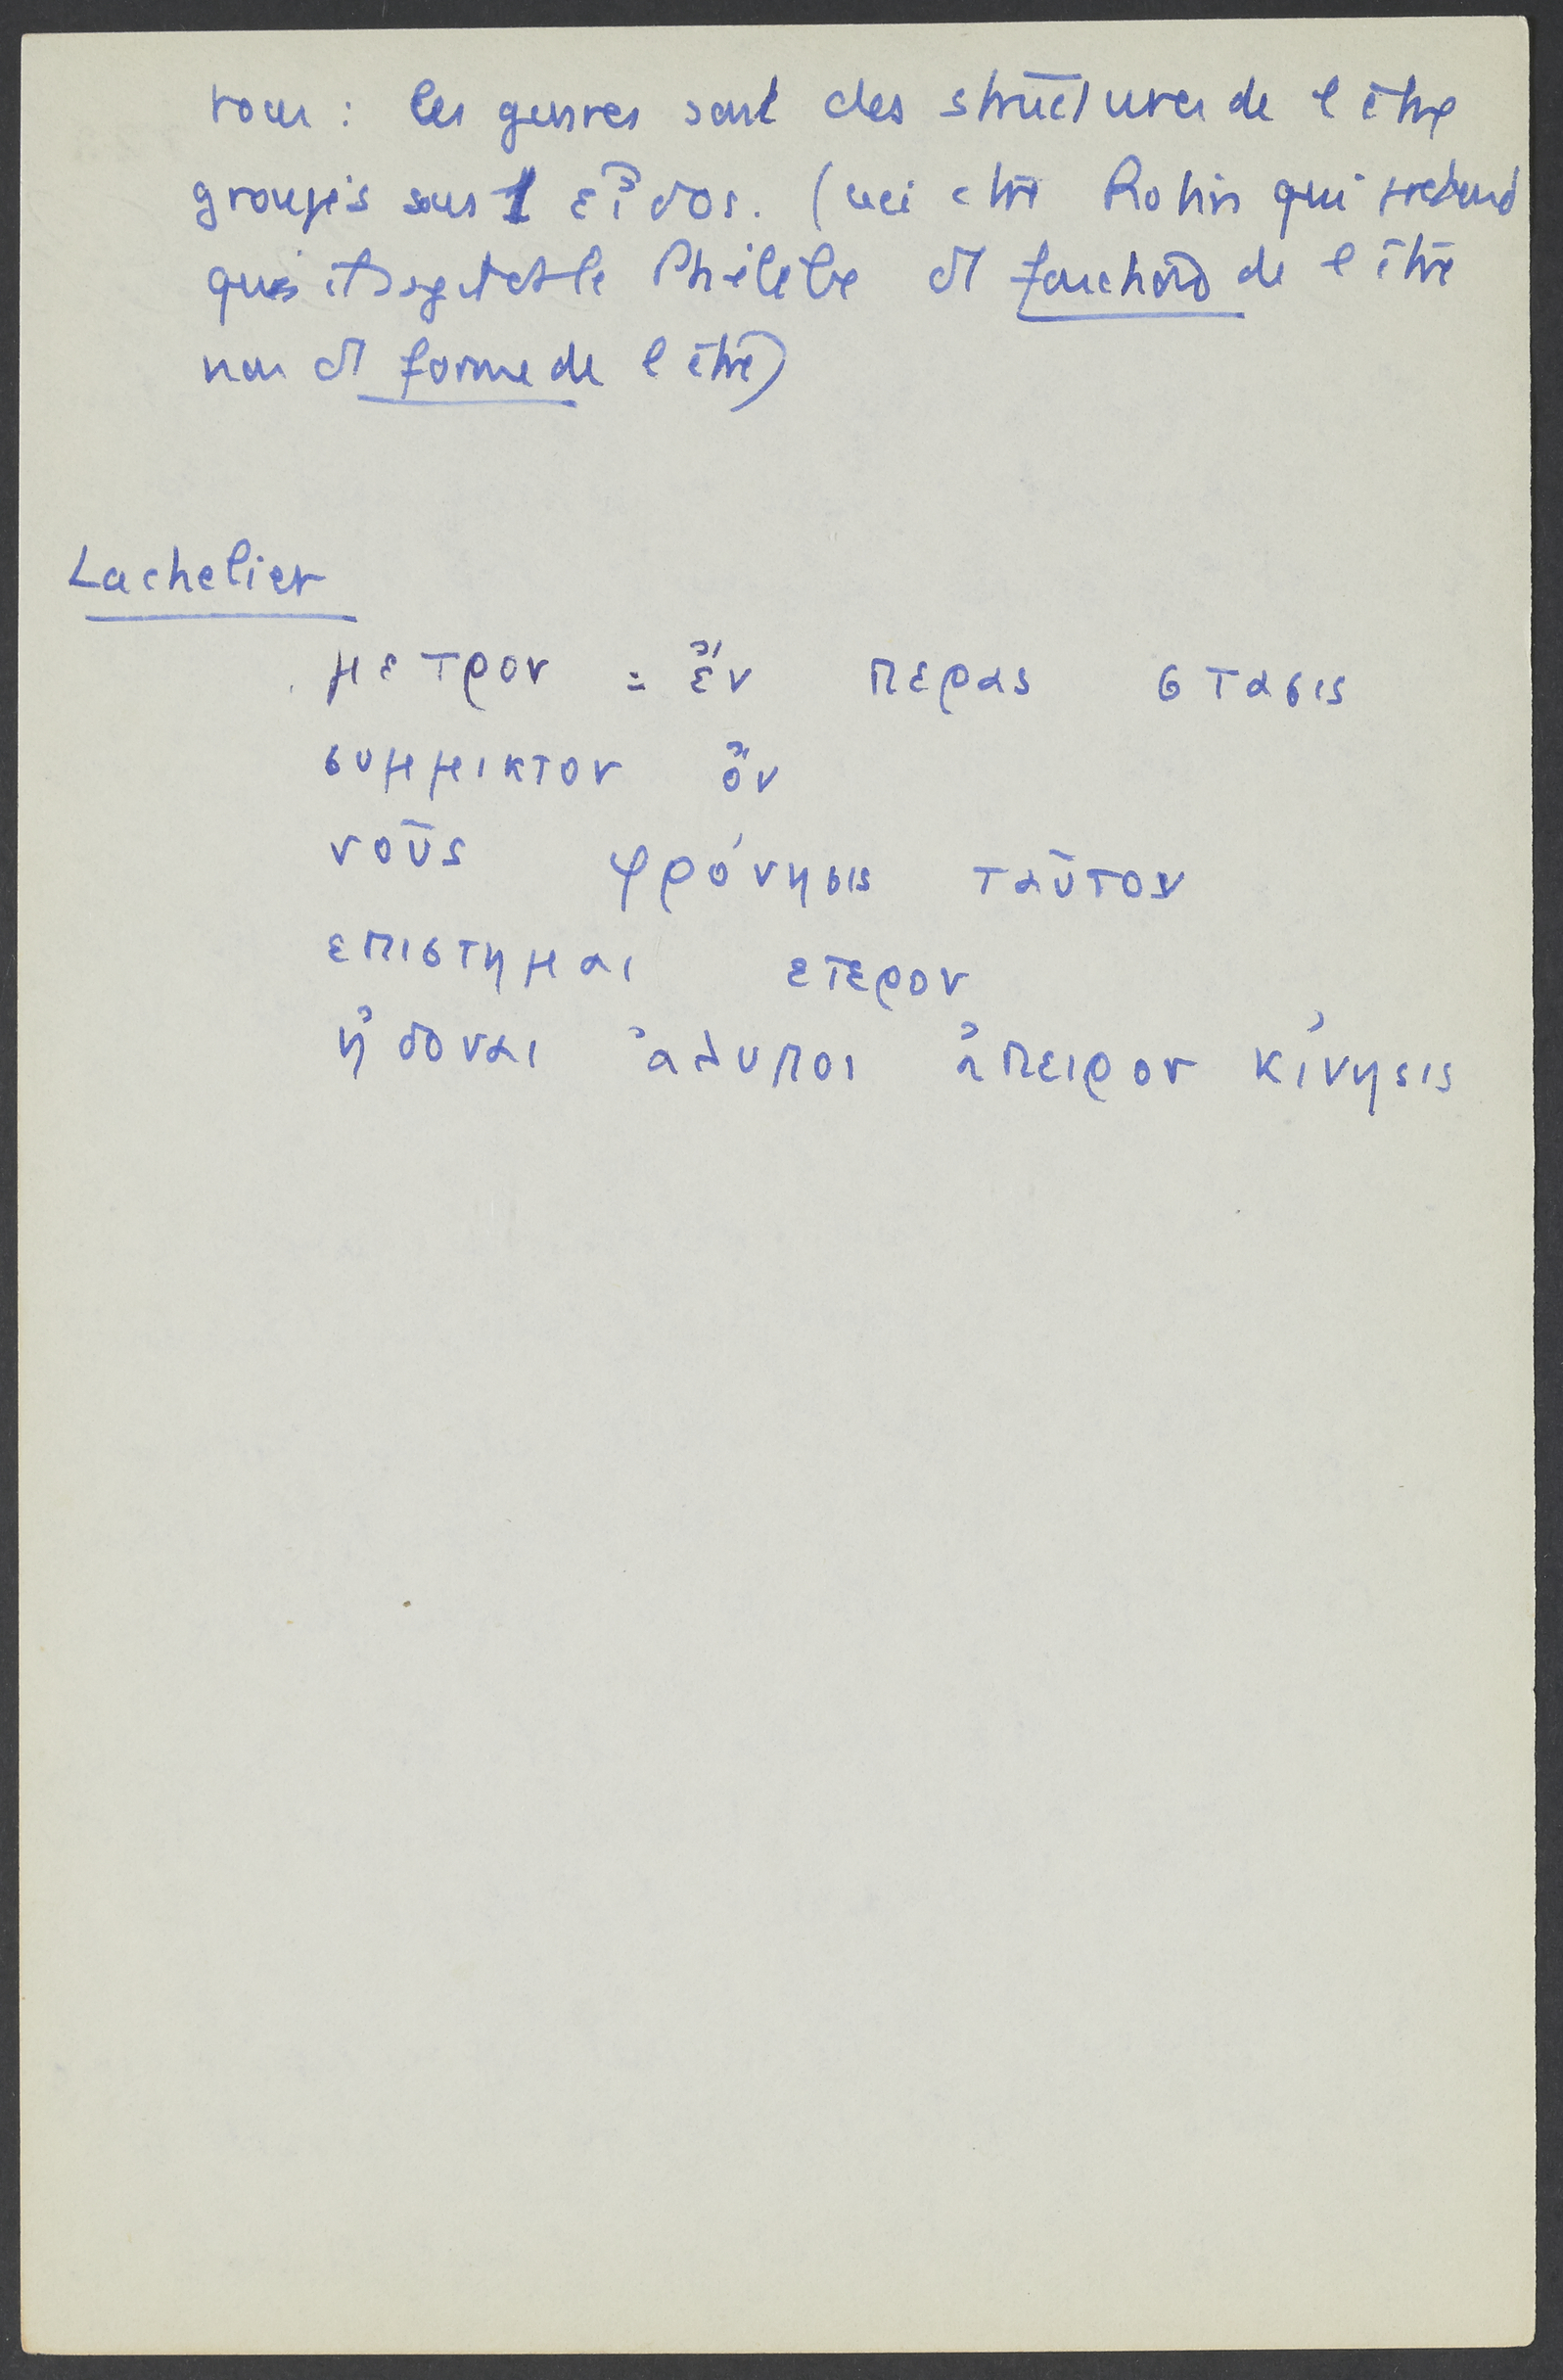 nous : les genres sont des structures de l être
groupés sous 1 εἶδος. (ceci ctre Robin qui prétend
qu'il s'agit ds le Philèbe de fonctions de l être
non de forme de l être)
Lachelier
μετρον = ἕν περας στασις
συμμικτον ὄν
νοῦς φρόνησις ταὐτον
επιστημαι ετερον
ἡδοναι ἀλυποι ἀπειρον κίνησις